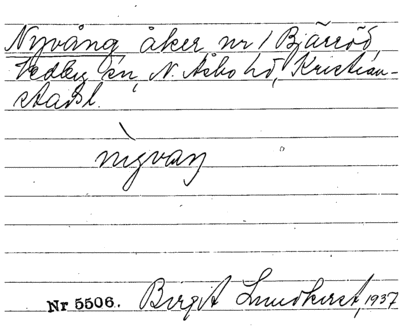 Nyvång åker nr 1 Bjärröd,
Vedby sn, N. Åsbo hd, Kristian-
stads l.
nỳvaŋ
Nr 5506. Birgit Lundkvist, 1937